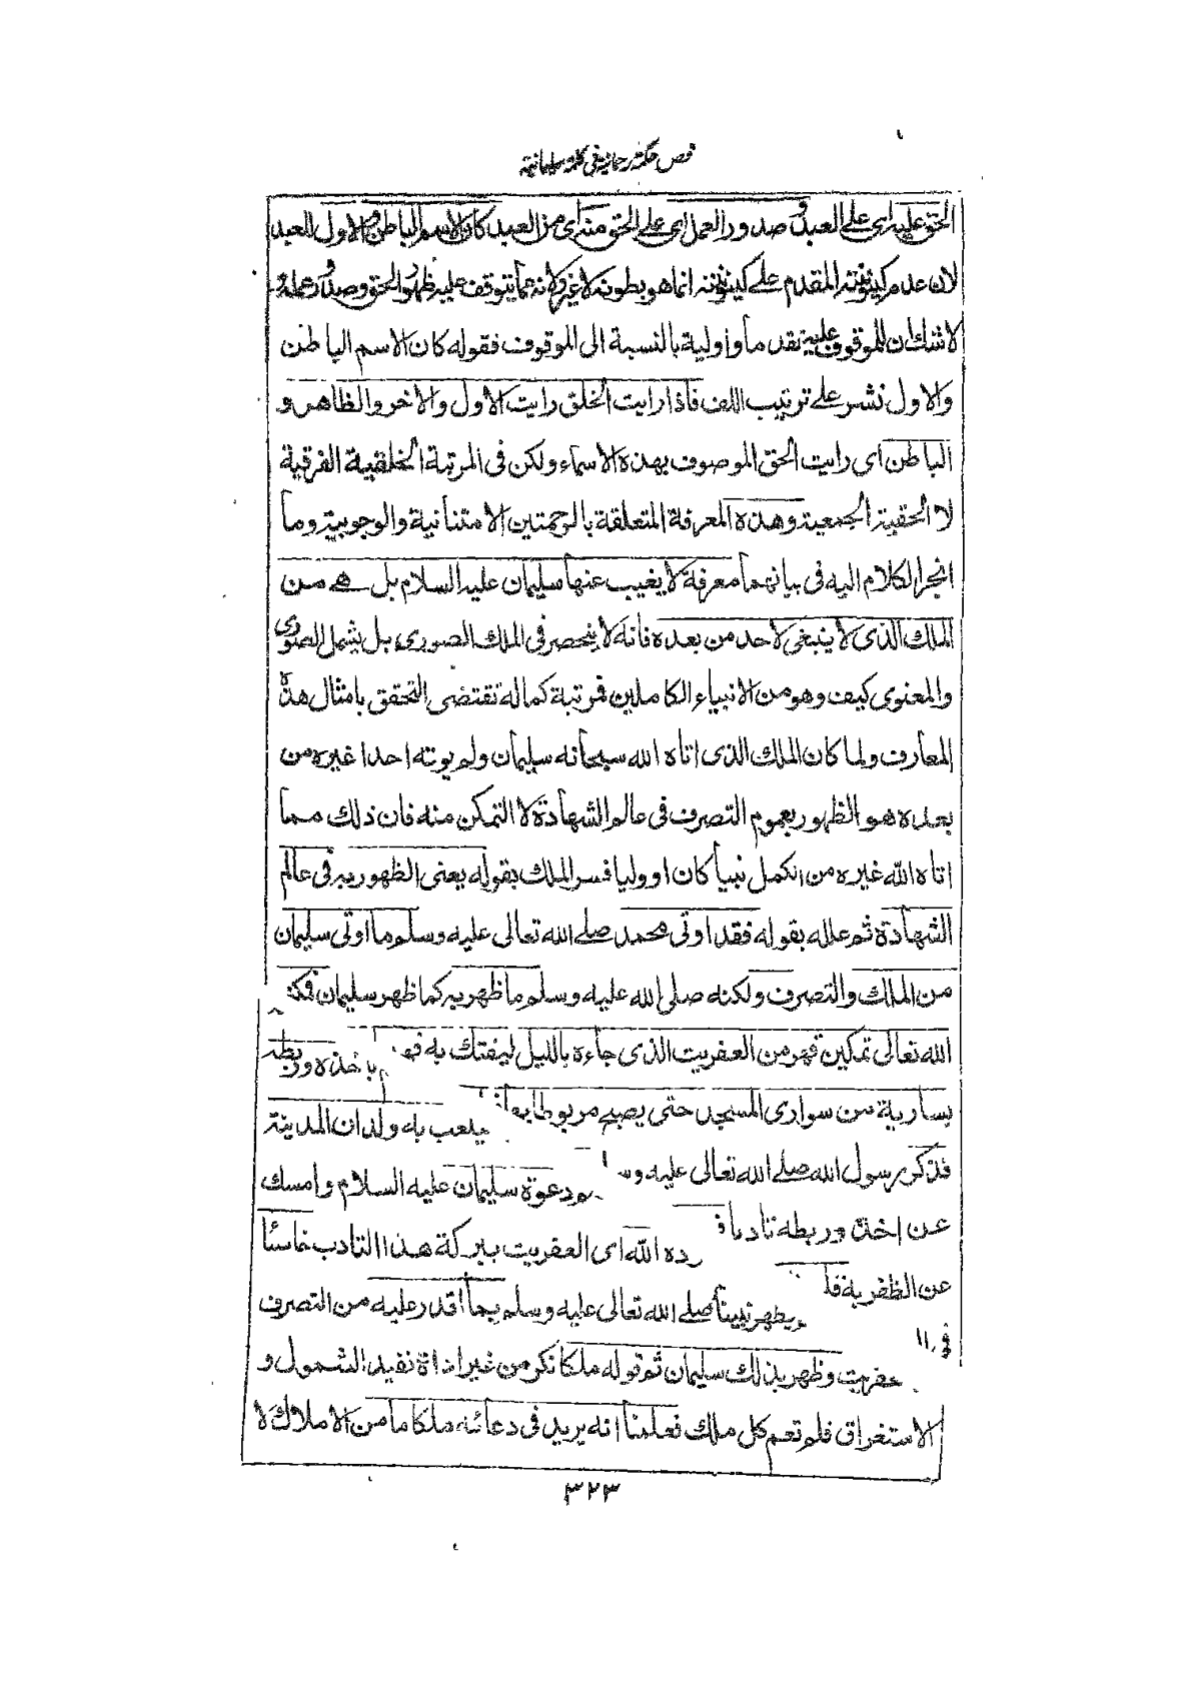 فص حكمة رحمانية في كلمة سليمانية
الحق عليه اى على العبد و صدور العمل اى على الحق منه اى من العبد كان الاسم الباطن والاول للعبد
لان عدم كينونيته المقدم على كينونته انما هو بطونه لا غير ولانه مما يتوقف عليه ظهور الحق وصدور عمله و
لا شك ان للموقوف عليه تقدما واولية بالنسبة الى الموقوف فقوله كان الاسم الباطن
والاول نشر على ترتيب اللف فاذا رايت الخلق رايت الاول والاخر والظاهر و
الباطن اى رايت الحق الموصوف بهذه الاسماء ولكن فى المرتبة الخلقية الفرقية
لا الحقية الجمعية وهذه المعرفة المتعلقة بالرحمتين الامتنانية والوجوبية وما
انجر الكلام اليه فى بيانهما معرفة لا يغيب عنها سليمان عليه السلام بل هى من
الملك الذى لا ينبغى لاحد من بعده فانه لا ينحصر فى الملك الصورى بل يشمل الصورى
والمعنوى كيف وهو من الانبياء الكاملين فمرتبة كماله تقتضى التحقق بامثال هذه
المعارف ولما كان الملك الذى اتاه الله سبحانه سليمان ولم يوته احدا غيره من
بعده هو الظهور بعموم التصرف فى عالم الشهادة لا التمكن منه فان ذلك مما
اتاه الله غيره من الكمل نبيا كان او وليا فسر الملك بقوله يعنى الظهور به فى عالم
الشهادة ثم علله بقوله فقد اوتى محمد صلى الله تعالى عليه وسلم ما اوتى سليمان
من الملك والتصرف ولكنه صلى الله عليه وسلم ما ظهر به كما ظهر سليمان فمكنه
الله تعالى تمكين قهر من العفريت الذى جاءه بالليل ليفتك به فهم باخذه وربطه
بسارية من سوارى المسجد حتى يصبح مربوطا بها يلعب به ولدان المدينة
فذكر رسول الله صلى الله تعالى عليه وس دعوة سليمان عليه السلام وامسك
عن اخذه وربطه تادبا ف رده الله اى العفريت ببركة هذا التادب خاسئا
عن الظفر به فلم يظهر نبينا صلى الله تعالى عليه وسلم بما اقدر عليه من التصرف
فى ال عفريت وظهر بذلك سليمان ثم قوله ملكا نكر من غير اداة تفيد الشمول و
الاستغراق فلم تعم كل ملك فعلمنا انه يريد فى دعائه ملكا ما من الاملاك لا
٣٢٣